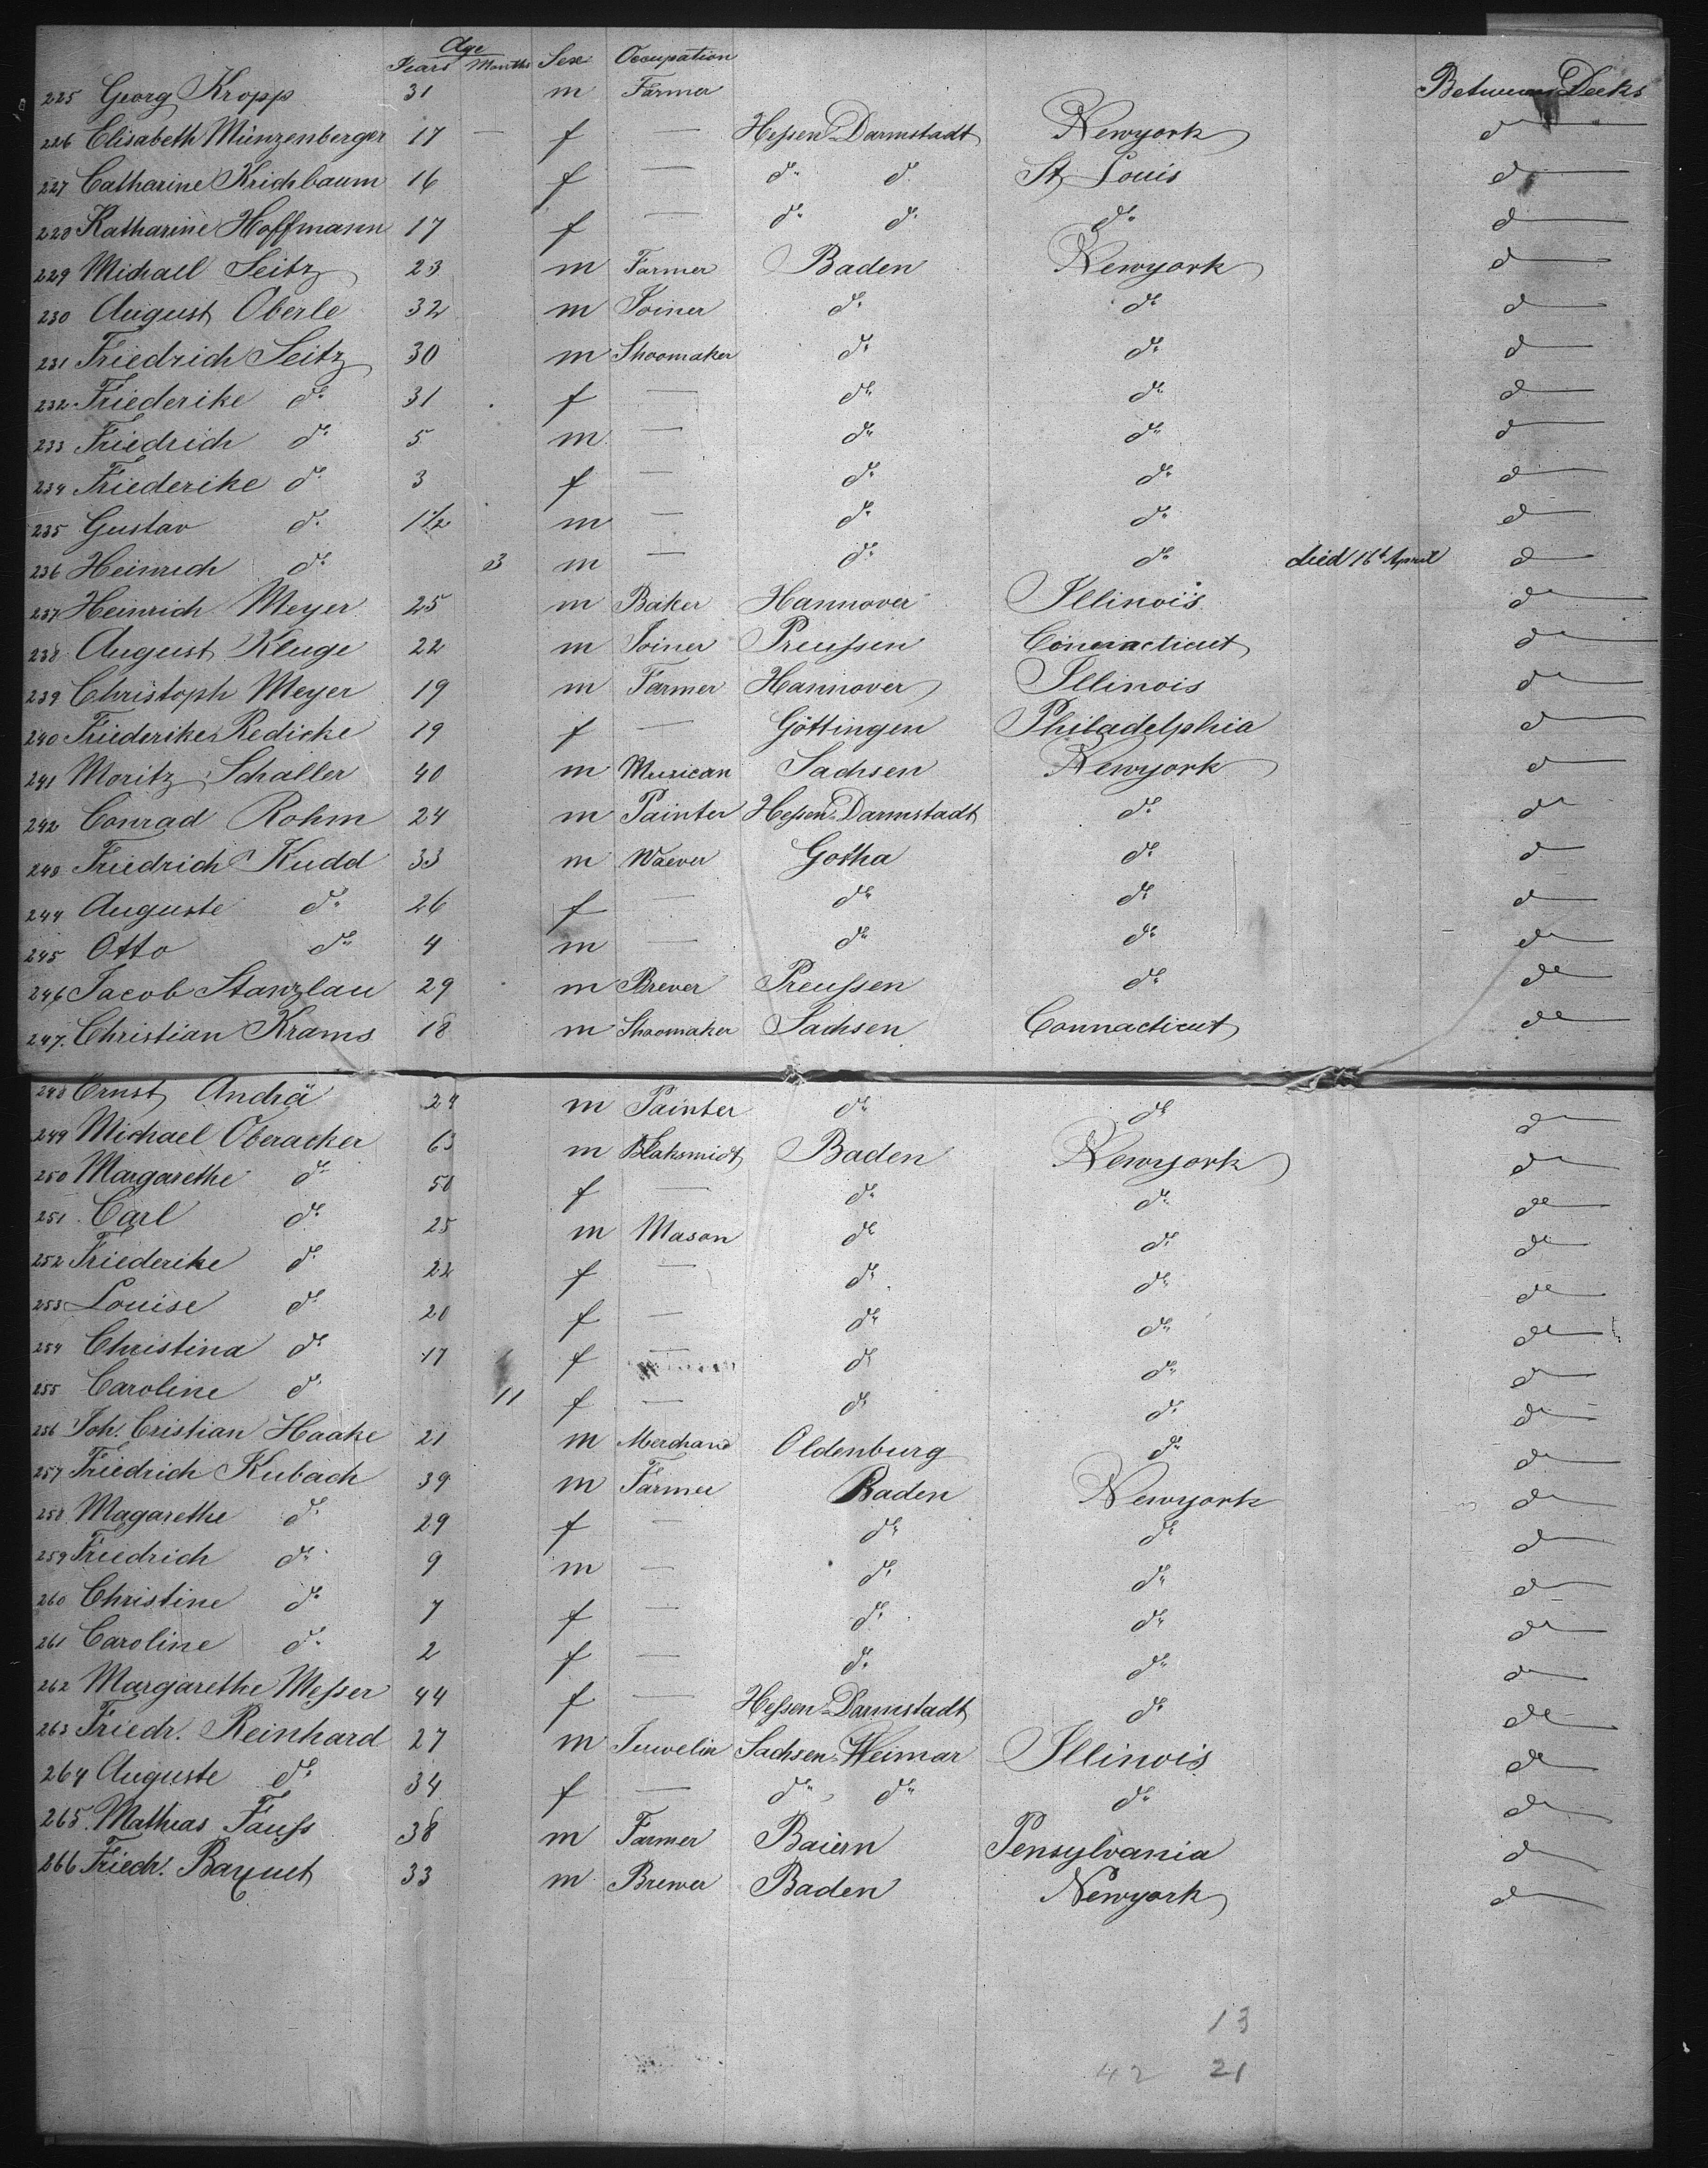 Age
Years Months Sex Occupation
225 Georg Kropp 31 m Farmer Between Decks
226 Elisabeth Münzenberger 17 — f — Heſsen-Darmstadt Newyork do
227 Catharine Krichbaum 16 f — do do St Louis do
228 Katharine Hoffmann 17 f — do do do do
229 Michael Seitz 23 m Farmer Baden Newyork do
230 August Oberle 32 m Joiner do do do
231 Friedrich Seitz 30 m Shoomaker do do do
232 Friederike do 31 f — do do do
233 Friedrich do 5 m — do do do
234 Friederike do 3 f — do do do
235 Gustav do 1 1/2 m — do do do
236 Heinrich do 3 m — do do died 16t April do
237 Heinrich Meyer 25 m Baker Hannover Illinois do
238 August Kluge 22 m Joiner Preuſsen Connacticut do
239 Christoph Meyer 19 m Farmer Hannover Illinois do
240 Friederike Redicke 19 f — Göttingen Philadelphia do
241 Moritz Schaller 40 m Musican Sachsen Newyork do
242 Conrad Rohm 24 m Painter Heſsen-Darmstadt do do
243 Friedrich Kudd 33 m Waever Gotha do do
244 Auguste do 26 f — do do do
245 Otto do 4 m — do do do
246 Jacob Stanzlau 29 m Brever Preuſsen do do
247. Christian Krams 18 m Shoomaker Sachsen Connacticut do
248 Ernst Andrä 24 m Painter do do do
249 Michael Oberacker 63 m Blaksmidt Baden Newyork do
250 Margarethe do 50 f — do do do
251 Carl do 25 m Mason do do do
252 Friederike do 22 f — do do do
253 Louise do 20 f — do do do
254 Christina do 17 f — do do do
255 Caroline do 11 f — do do do
256 Joh. Cristian Haake 21 m Merchand Oldenburg do do
257 Friedrich Kubach 39 m Farmer Baden Newyork do
258 Magarethe do 29 f — do do do
259 Friedrich do 9 m — do do do
260 Christine do 7 f — do do do
261 Caroline do 2 f — do do do
262 Margarethe Meſser 44 f — Heſsen-Darmstadt do do
263 Friedr. Reinhard 27 m Juwelir Sachsen-Weimar Illinois do
264 Auguste do 34 f — do do do do
265. Mathias Fauſs 38 m Farmer Baiern Pensylvania do
266 Friedr. Baquet 33 m Brewer Baden Newyork do
13
42 21